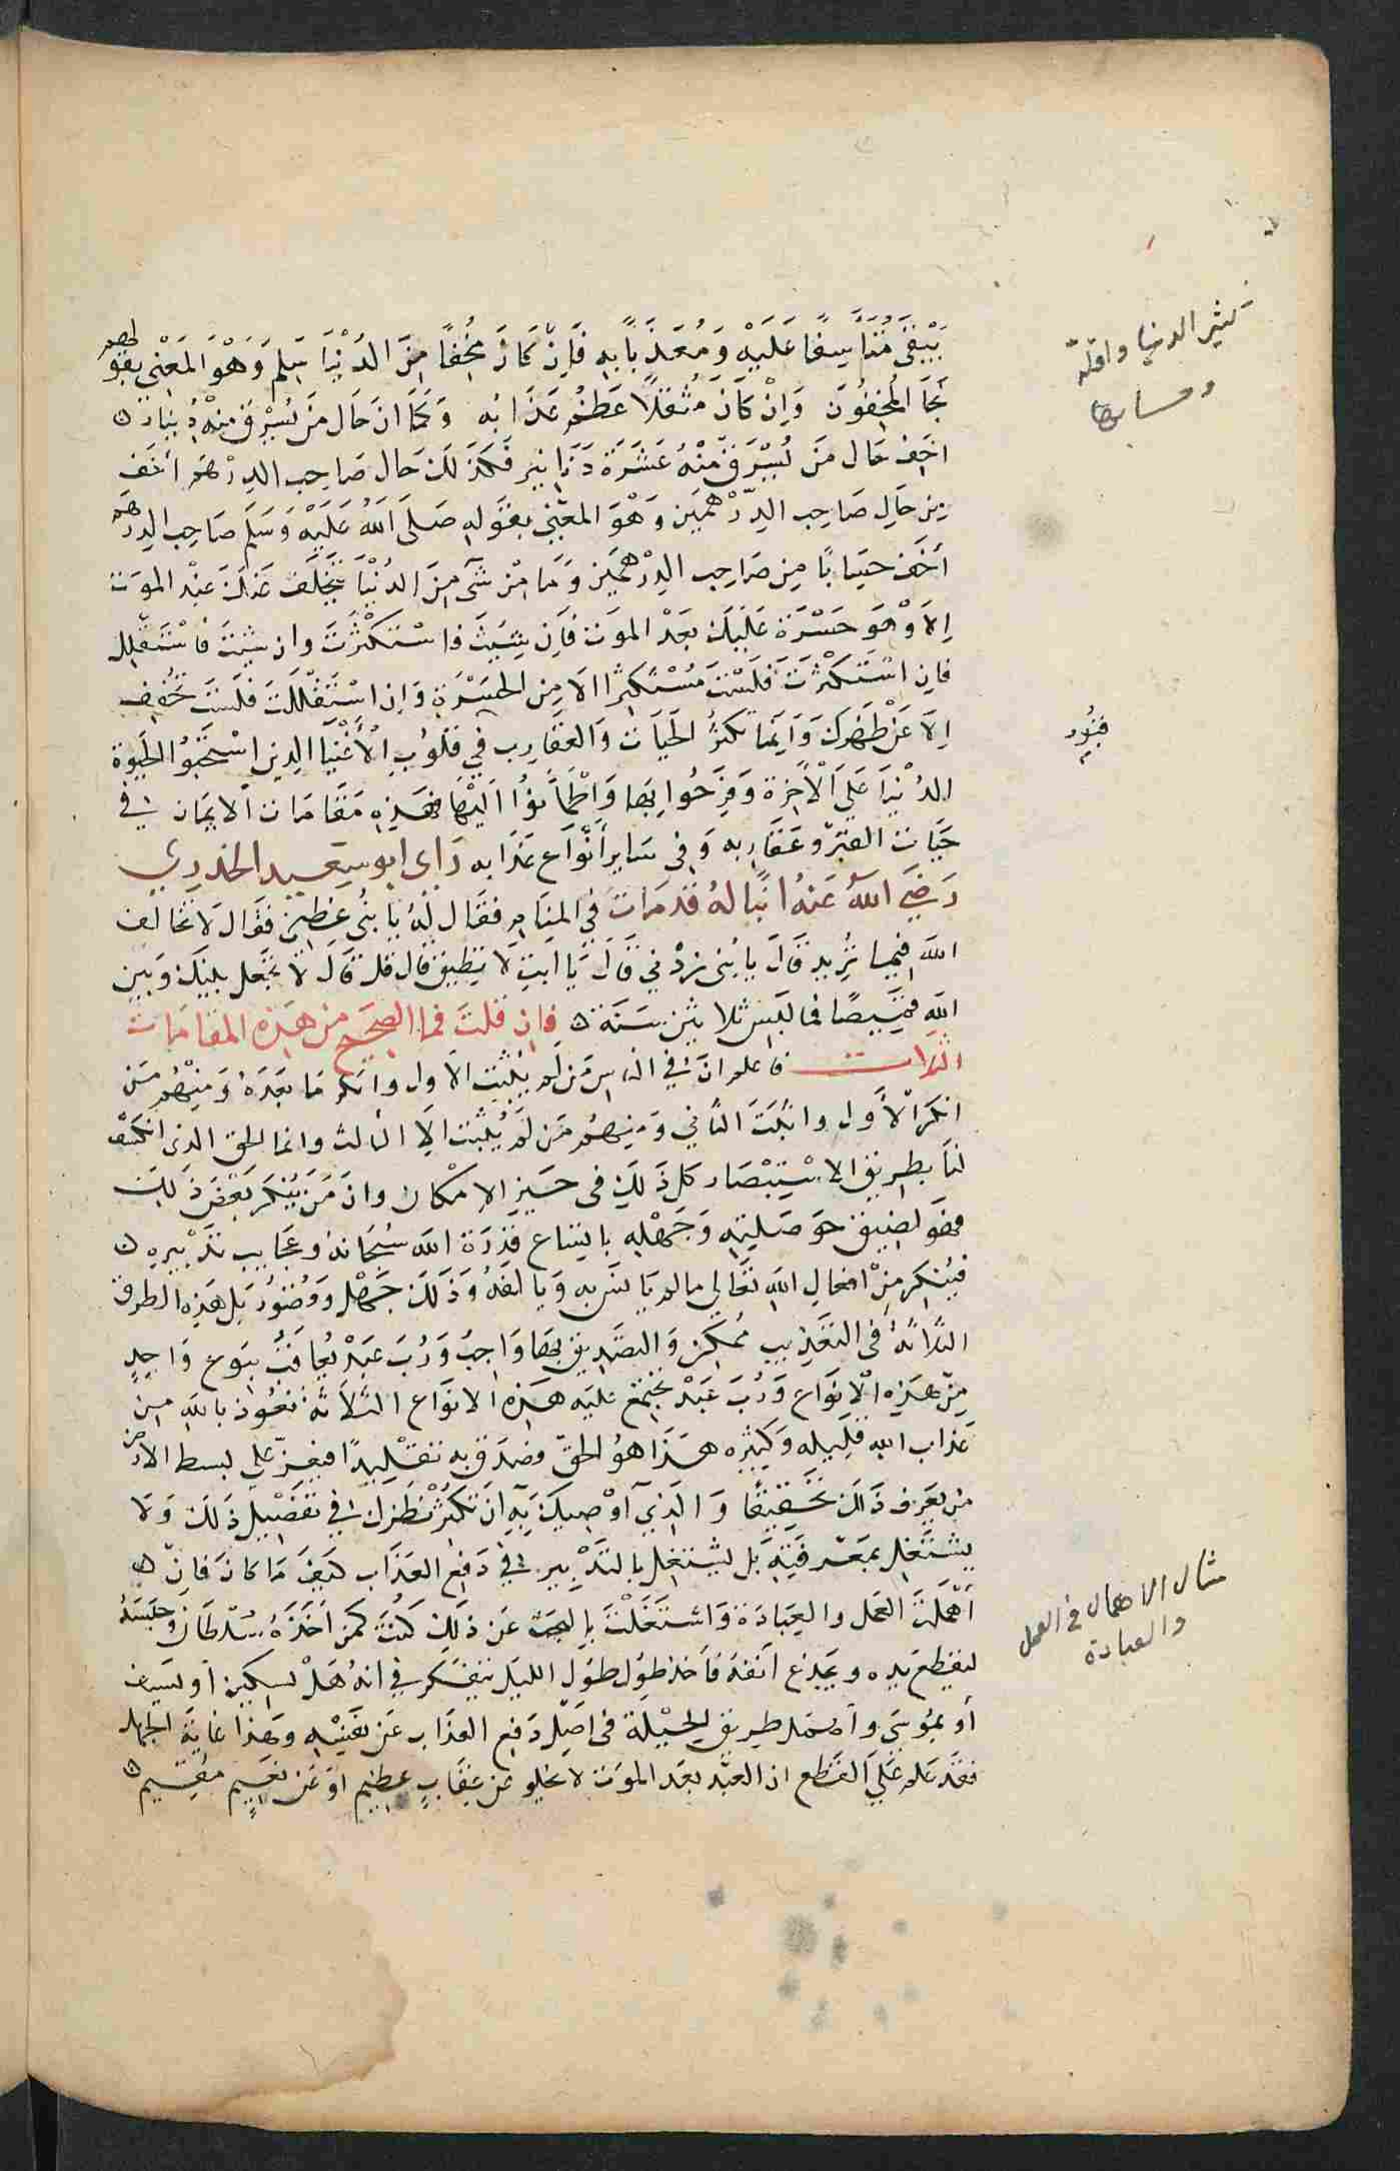 كثير الدنيا واقله
وحسابها
يَبْقَى مُتَأسِفًا عَلَيْهِ وَمُعَذَّبًا بِهِ فَاِنْ كَانَ مُخِفًّا مِنَ الدُنْيَا سَلِمَ وَهْوَ المَعْنى بقولهم
نَجَا المُخِفُونَ وَاِنْ كَانَ مُثْقَلًا عَظُمَ عَذَابُه وَكَمَا ان حَال مَنْ يُسْرَق مِنْهُ دِينَار
اخَف حَال مَن يُسْرَق مِنْهُ عَشَرَة دَنَانِير فَكَذَلَك حَال صَاحِب الدِرْهَم اَخَف
مِن حَالِ صَاحِب الدِّرْهَمَين وَهْوَ المَعْنى بِقَولهِ صَلى اللهُ عَلَيْهِ وَسَلم صَاحِب الدِرْهَم
أخَف حِسَابًا مِن صَاحِب الدِرْهَمَين وَمَا مِنْ شَى مِنَ الدُنْيَا يتَخَلَّف عَنكَ عِنْد الموَت
اِلا وَهْوَ حَسْرَة عَلَيكَ بَعْد الموَت فَاِن شِيتَ فَاسْتَكْثَرت وان شِيتَ فاسْتَقْلِل
فان اسْتَكْثَرتَ فَلَسْتَ مُسْتكثِرًا الا مِن الحَسْرَةِ وَاِن اسْتَقْلَلتَ فَلَستَ تُخَفِف
اِلا عَنْ ظَهْرِكَ وَاِنَّمَا تكْثُر الحَيَات وَالعَقَارِب فِي قُلُوُب الأغْنِيَا الذِين اسْتَحَبُوُا الحَيَوة
الدُنْيَا عَلَى الاْخِرَة وَفَرِحُوا بِهَا وَاطْمَأنُوُا اِلَيْهَا فهَذِهِ مَقَامَات الايمَان في
حَيَات القَبْر وعَقَارِبه وَفى سَايِر أنْوَاع عَذَابه رَاى ابو سَعيد الخدري
رَضِيَ اللهُ عَنْهُ ابْنًا لهُ قد مَاتَ في المنَام فقَال لهُ يَا بنُى عِظنى فقَال لا تخالف
اللهَ فيما يُريد قَالَ يا بُنى زِدْني قَالَ يَا ابتِ لا تطِيق قال قل قَالَ لا تجعل بينك وَبين
اللهِ قمِيصًا فما لَبس ثلاثين سَنَة فَاِن قلتَ فما الصَحيح من هَذِه المقامَات
الثلاث فاعلم انَّ في النَاس مَن لَم يُثْبِت الا الاول وانكر مَا بَعْدَهُ وَمِنْهُم مَن
انكَر الأول واثبَتَ الثاني وَمِنهُم مَن لَم يُثبِت اِلا الثالث وانما الحق الذى انكشف
لنَا بطِريق الاسْتِبْصَار كل ذَلِك فى حَيزِ الامْكان وانَّ مَن يُنْكر بَعْضَ ذَلِكَ
فهو لضِيق حَوصَلتِهِ وَجَهْلِهِ باتسَاع قدرَة اللهِ سُبْحَانهُ وعَجَايب تدْبيره
فيُنكِر مِنْ افعَالِ اللهِ تعَالي مالم يَانَس بِه وَيَالفهُ وَذَلَك جَهْل وَقُصُوُر بَل هَذِه الطرق
الثلاثة فى التعْذِيب مُمكِن وَالتصْدِيق بهَا وَاجِبٌ وَرُبَ عَبْد يُعَاقَبُ بنَوع وَاحِدٍ
مِنْ هَذِه الانوَاع وَرُبَ عَبْد تجْتمع عَليه هَذِه الانوَاع الثلاثة نَعُوذ باللهِ من
عَذاب الله قلِيله وَكثِيره هَذَا هُوُ الحَقّ فصَدق به تقْلِيدًا فيَعِزّ على بسط الارض
مَن يعرِف ذَلكَ تَحقِيقًا وَالذي اوْصِيكَ بِهِ ان لا تكثِر نَظَرك في تفْصِيل ذَلكَ وَلا
يشتغِل بمعْرفَتِهِ بَل يشتغِل بالتَدْبِير في دَفع العَذَاب كيفَ مَا كانَ فانّ
اهْمَلتَ العَمَل والعِبَادَة وَاشتَغَلْتَ بِالبحث عَن ذلك كُنْتَ كمن أخَذَهُ سُلْطَان وحَبَسَهُ
ليَقطع يَده ويَجدَع انفهُ فَأخذ طِوُل طُول الليَل يتفكر في انهُ هَل بسِكين أو بسَيف
أو بمُوسَى وأهمل طَريق الحِيلة في اصْل دَفع العَذَاب عَن نفْسِهِ وهَذا غايَة الجهل
فقَد عَلمِ عَلَى القَطع ان العبْد بعْد الموَت لا يخلو عَن عِقَابٍ عظِيمٍ اوْ عَن نعِيمٍ مقِيم
قبُور
مثال الاهمال في العمل
والعبادة